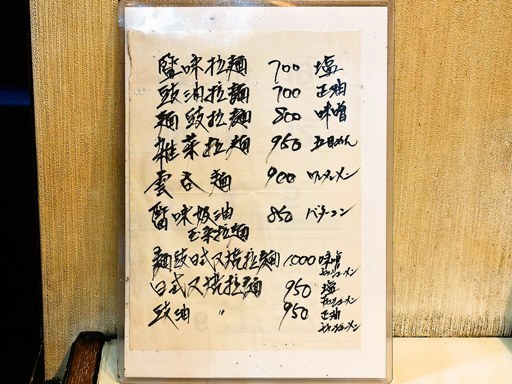 鹽味拉麺 700 塩
豉油拉麺 700 正油
麺豉拉麺 800 味噌
雑菜拉麺 950 五目めん
雲吞麺 900 ワンタンメン
鹽味奶油 850 バターコーン
玉米拉麺
麺豉日式叉燒拉麺 1000 味噌
チャーシューメン
日式叉燒拉麺 950 塩
チャーシューメン
豉油 〃 950 正油
チャーシューメン